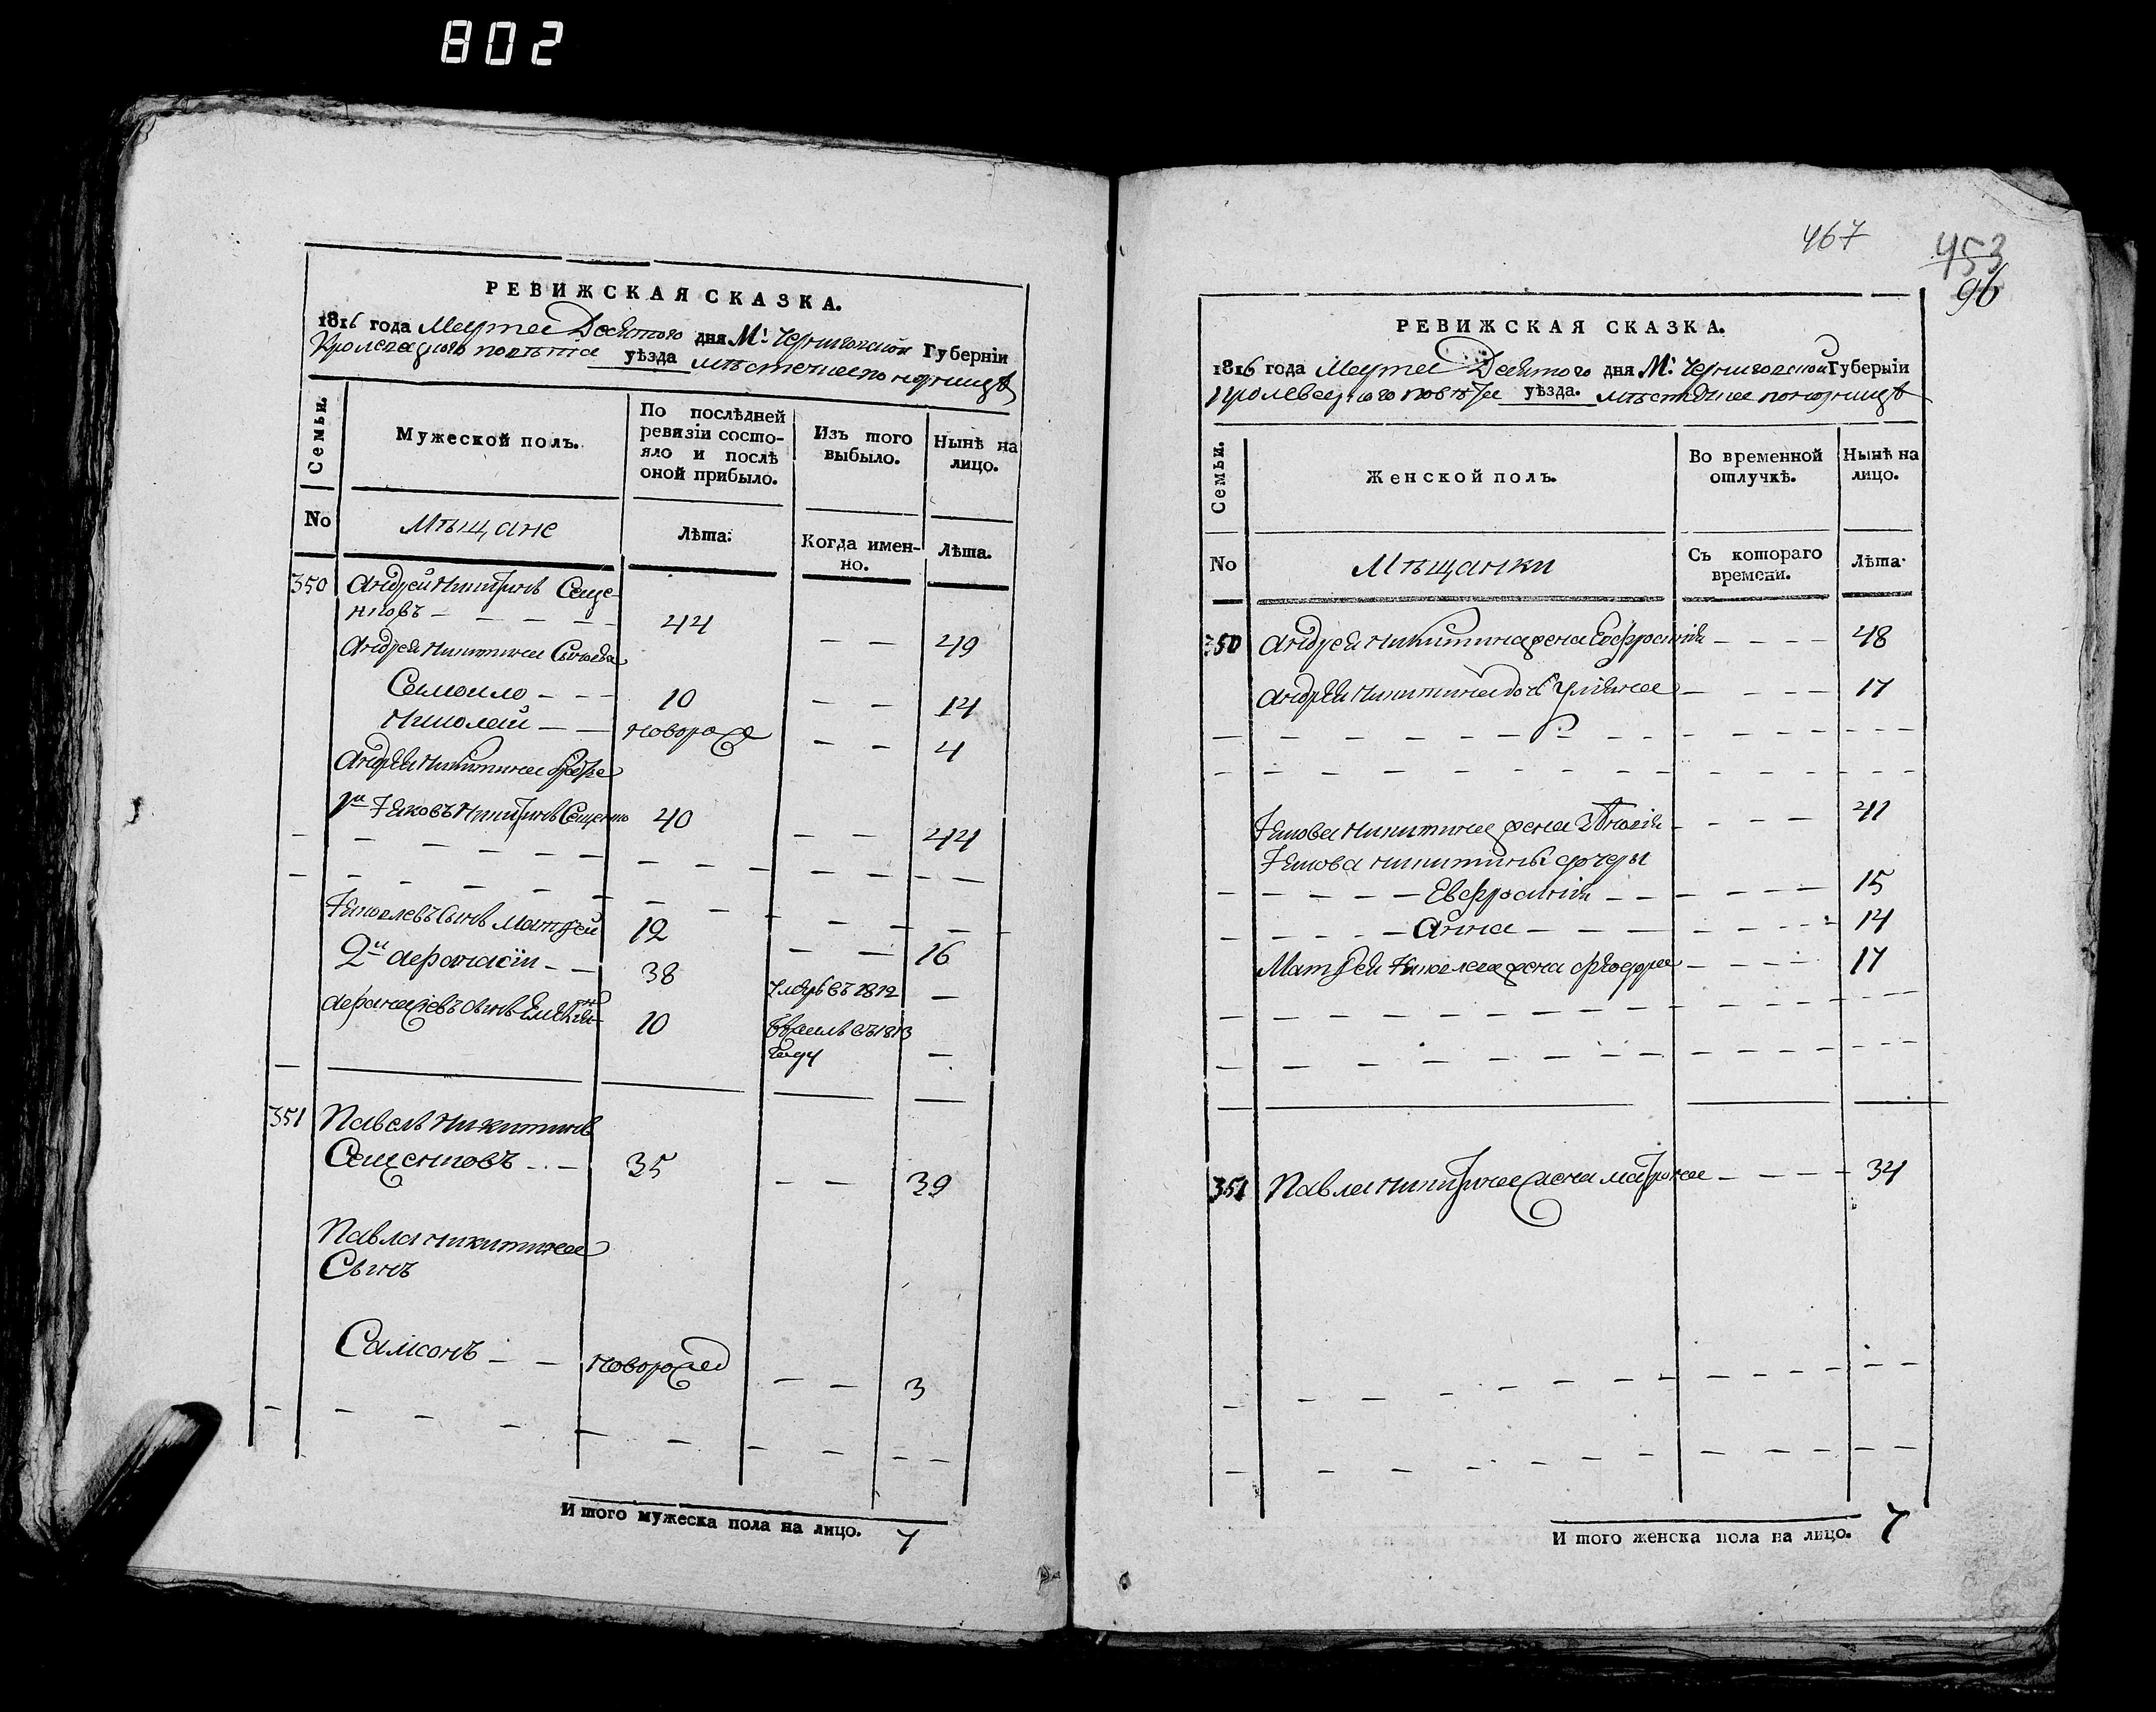 802
РЕВИЖСКАЯ СКАЗКА.
1816 года Марта Десятого дня М: Черниговской Губерніи
Кролевецкого повѣта уѣзда мѣстечка Понорницѣ
Семьи.
Мужеской полъ.
По послѣдней ревизіи состояло и послѣ оной прибыло.
Изъ того выбыло.
Нынѣ на лицо.
No
Мѣщане
Лѣта.
Когда именно.
Лѣта.
350 Андрей Никитинъ Сеще-
нковъ — 44 — 49
Андрея Никитина Сыновья
Самоило — 10 — 14
Николай — новорож — 4
Андрея Никитина братья
1й Яковъ Никитинъ Сещенко 40 — 44
Яковлевъ Сынъ Матфей 12 — 16
2й Афанасій — 38 Умеръ въ 1812 —
Афанасіевъ Сынъ 10 въ 1813
году —
351 Павелъ Никитинъ
Сещенковъ — 35 — 39
Павла Никитина
Сынъ
Самсонъ — новорожд — 3
И того мужеска пола на лицо. 7
467
453
96
РЕВИЖСКАЯ СКАЗКА.
1816 года Марта Десятого дня М: Черниговской Губерніи
Кролевецкого повѣта уѣзда. мѣстечка Понорницѣ
Семьи.
Женской полъ.
Во временной отлучкѣ.
Нынѣ на лицо.
No
Мѣщанки
Съ котораго времени.
Лѣта.
350 Андрея Никитина жена Евфросинія — 48
Андрея Никитина дочь Уліяна — 17
Якова Никитина жена — 41
Якова Никитины дочери
Евфросинія — 15
Анна — 14
Матфея Яковлева жена Фіодора — 17
351 Павла Никитина жена Матрона — 34
И того женска пола на лицо. 7